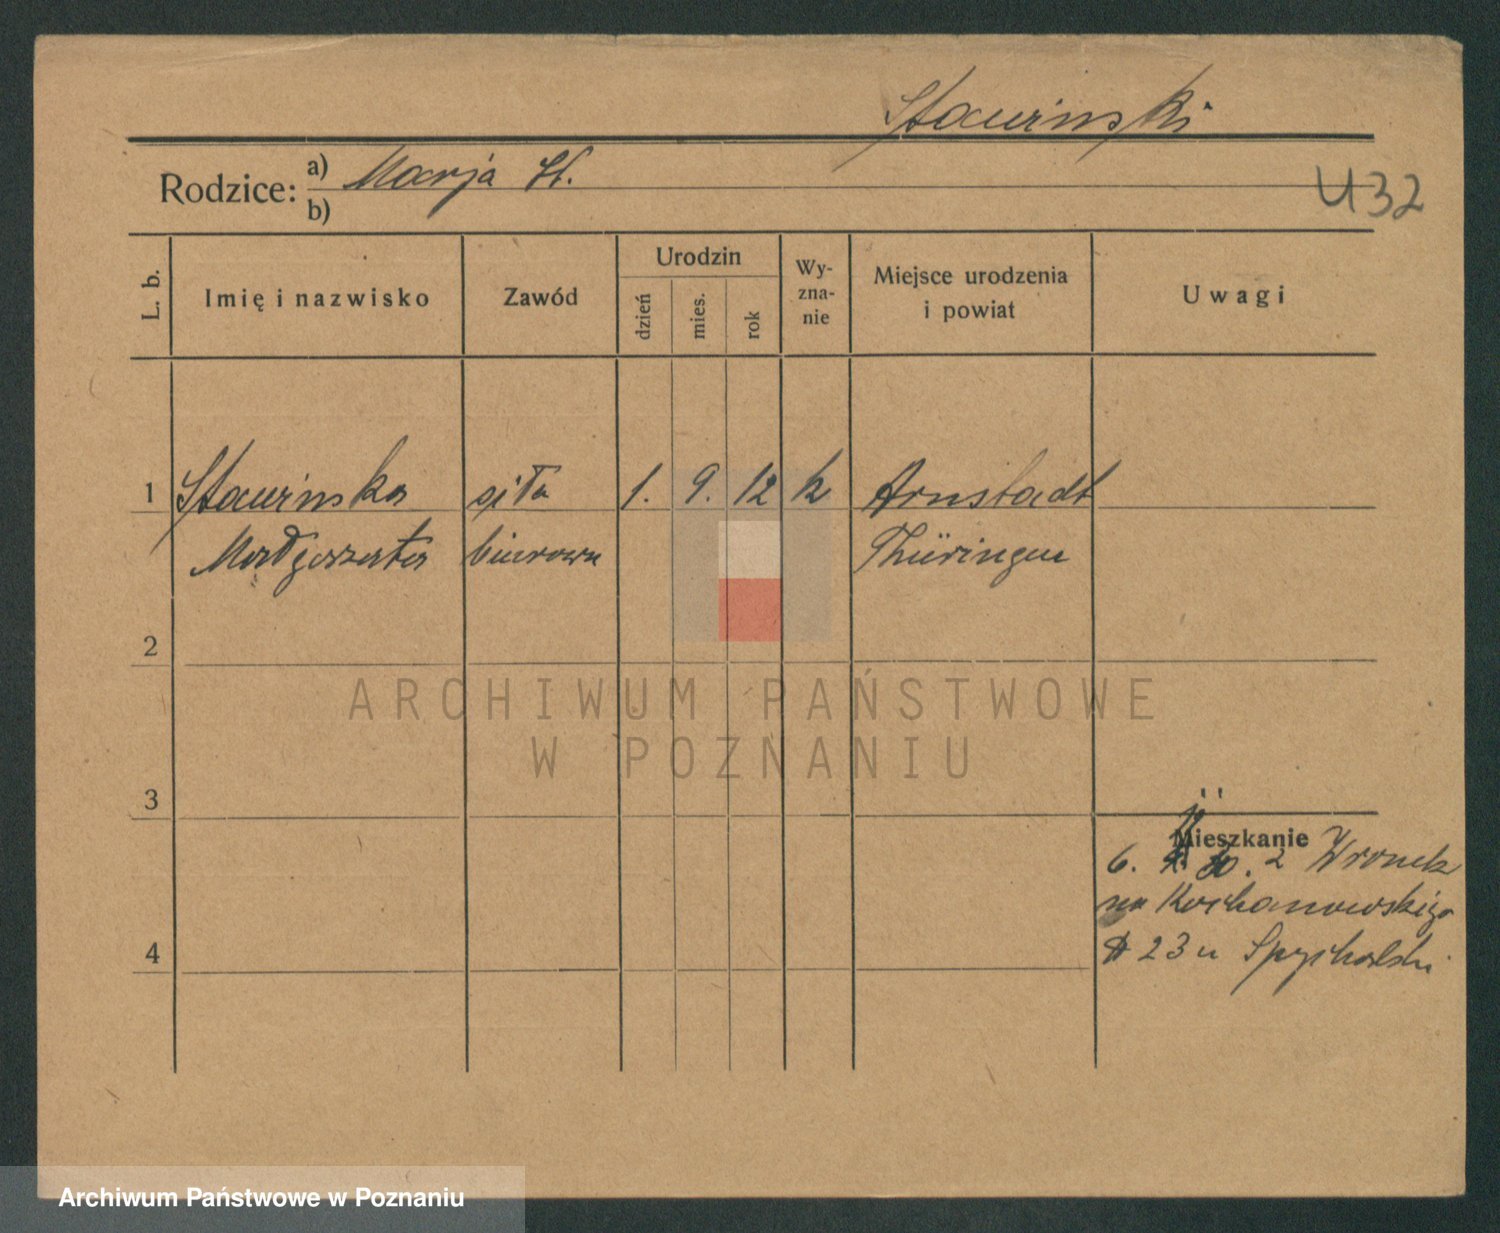 Stawinski
Rodzice: a) Marja St.
b)
U32
L. b.
Imię i nazwisko
Zawód
Urodzin
dzień
mies.
rok
Wy-
zna-
nie
Miejsce urodzenia
i powiat
Uwagi
1 Stawinska siła 1. 9. 12 k Arnstadt
Małgorzata biurowa Thüringen
2
3
4
Mieszkanie
6. 30. z Wronek
na Kochanowskiego
23 u Spychalski
ARCHIWUM PAŃSTWOWE
W POZNANIU
Archiwum Państwowe w Poznaniu